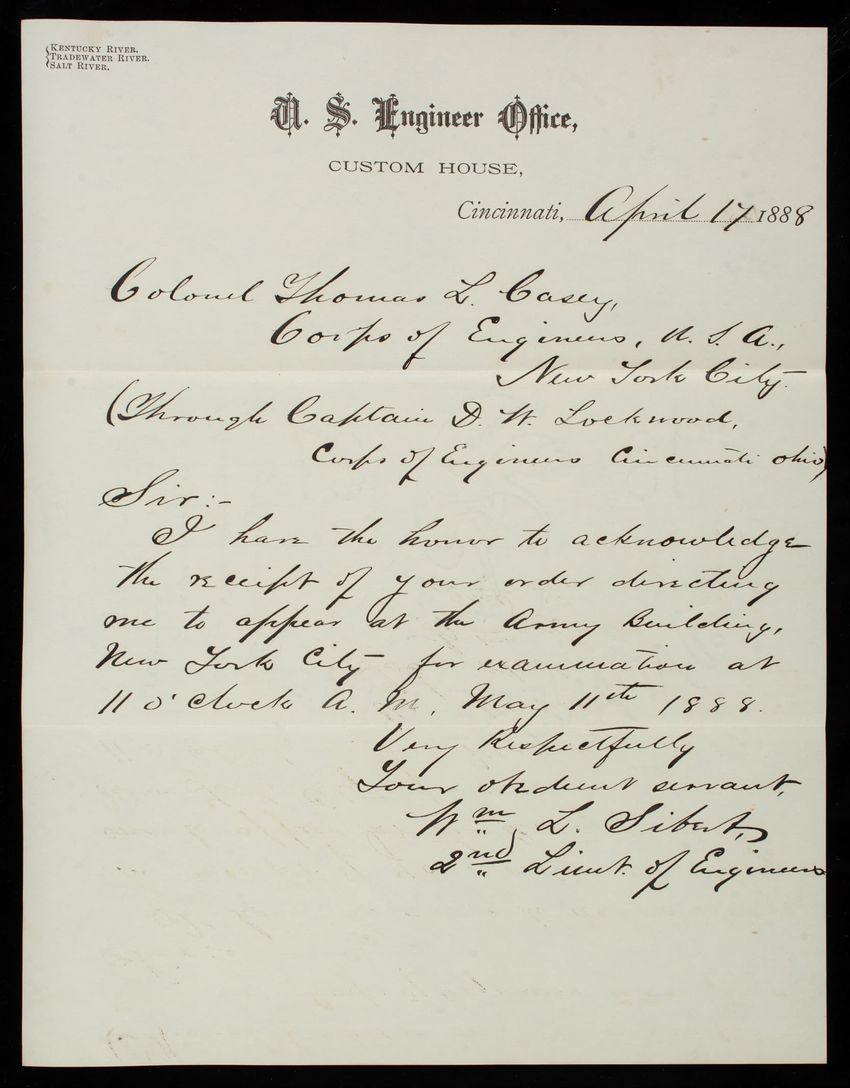 KENTUCKY RIVER.
TRADEWATER RIVER.
SALT RIVER.
U. S. Engineer Office,
CUSTOM HOUSE,
Cincinnati, April 17 1888
Colonel Thomas L. Casey,
Corps of Engineers, U. S. A.,
New York City.
(Through Captain D. W. Lockwood,
Corps of Engineers Cincinnati Ohio)
Sir:-
I have the honor to acknowledge
the receipt of your order directing
me to appear at the Army Building,
New York City for examination at
11 o'clock A. M., May 11th 1888.
Very Respectfully
Your obedient servant,
Wm L. Sibert,
2nd Lieut. of Engineers